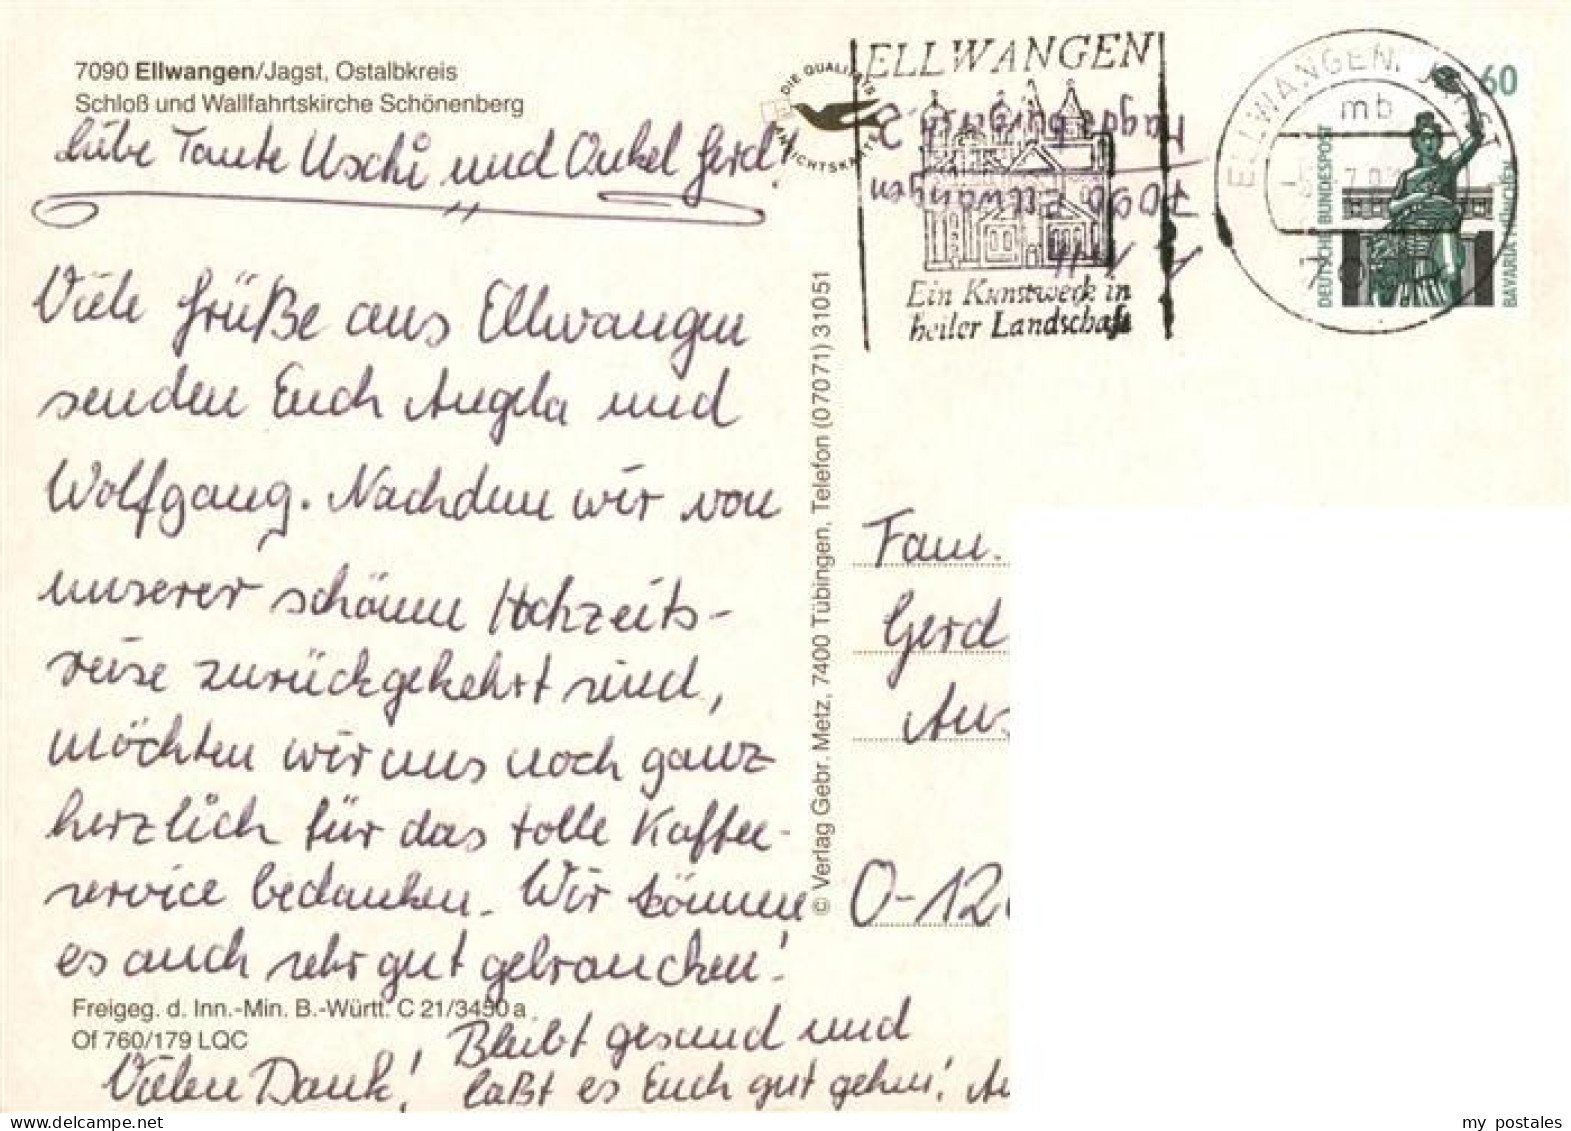 7090 Ellwangen/Jagst, Ostalbkreis
Schloß und Wallfahrtskirche Schönenberg
Liebe Tante Uschi und Onkel Gerd!
Viele Grüße aus Ellwangen
senden Euch Angela und
Wolfgang. Nachdem wir von
unserer schönen Hochzeits-
reise zurückgekehrt sind,
möchten wir uns noch ganz
herzlich für das tolle Kaffee-
service bedanken. Wir können
es auch sehr gut gebrauchen!
Freigeg. d. Inn.-Min. B.-Württ. C 21/3450 a
Of 760/179 LQC
Vielen Dank! Bleibt gesund und
laßt es Euch gut gehen! Au
DIE QUALITÄTS
ANSICHTSKARTE
© Verlag Gebr. Metz, 7400 Tübingen, Telefon (07071) 31051
ELLWANGEN
Ein Kunstwerk in
heiler Landschaft
7090 Ellwangen
ELLWANGEN, JAGST
mb
7090
60
DEUTSCHE BUNDESPOST
BAVARIA MÜNCHEN
Fam.
Gerd
O-12
my postales